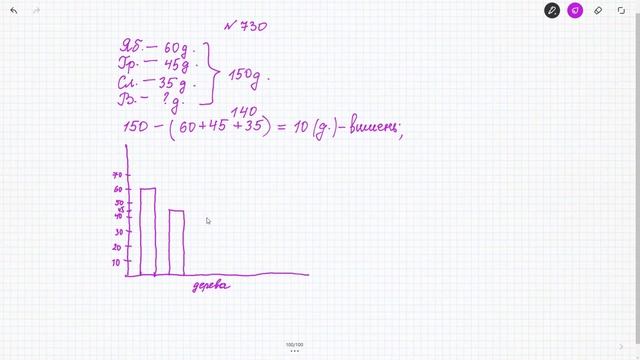 №730
Яб. — 60д.
Гр. — 45д.
Сл. — 35д.
В. — ? д.
150д.
140
150 — (60+45+35) = 10 (д.) – вишень;
70
60
50
45
40
30
20
10
дерева
100/100